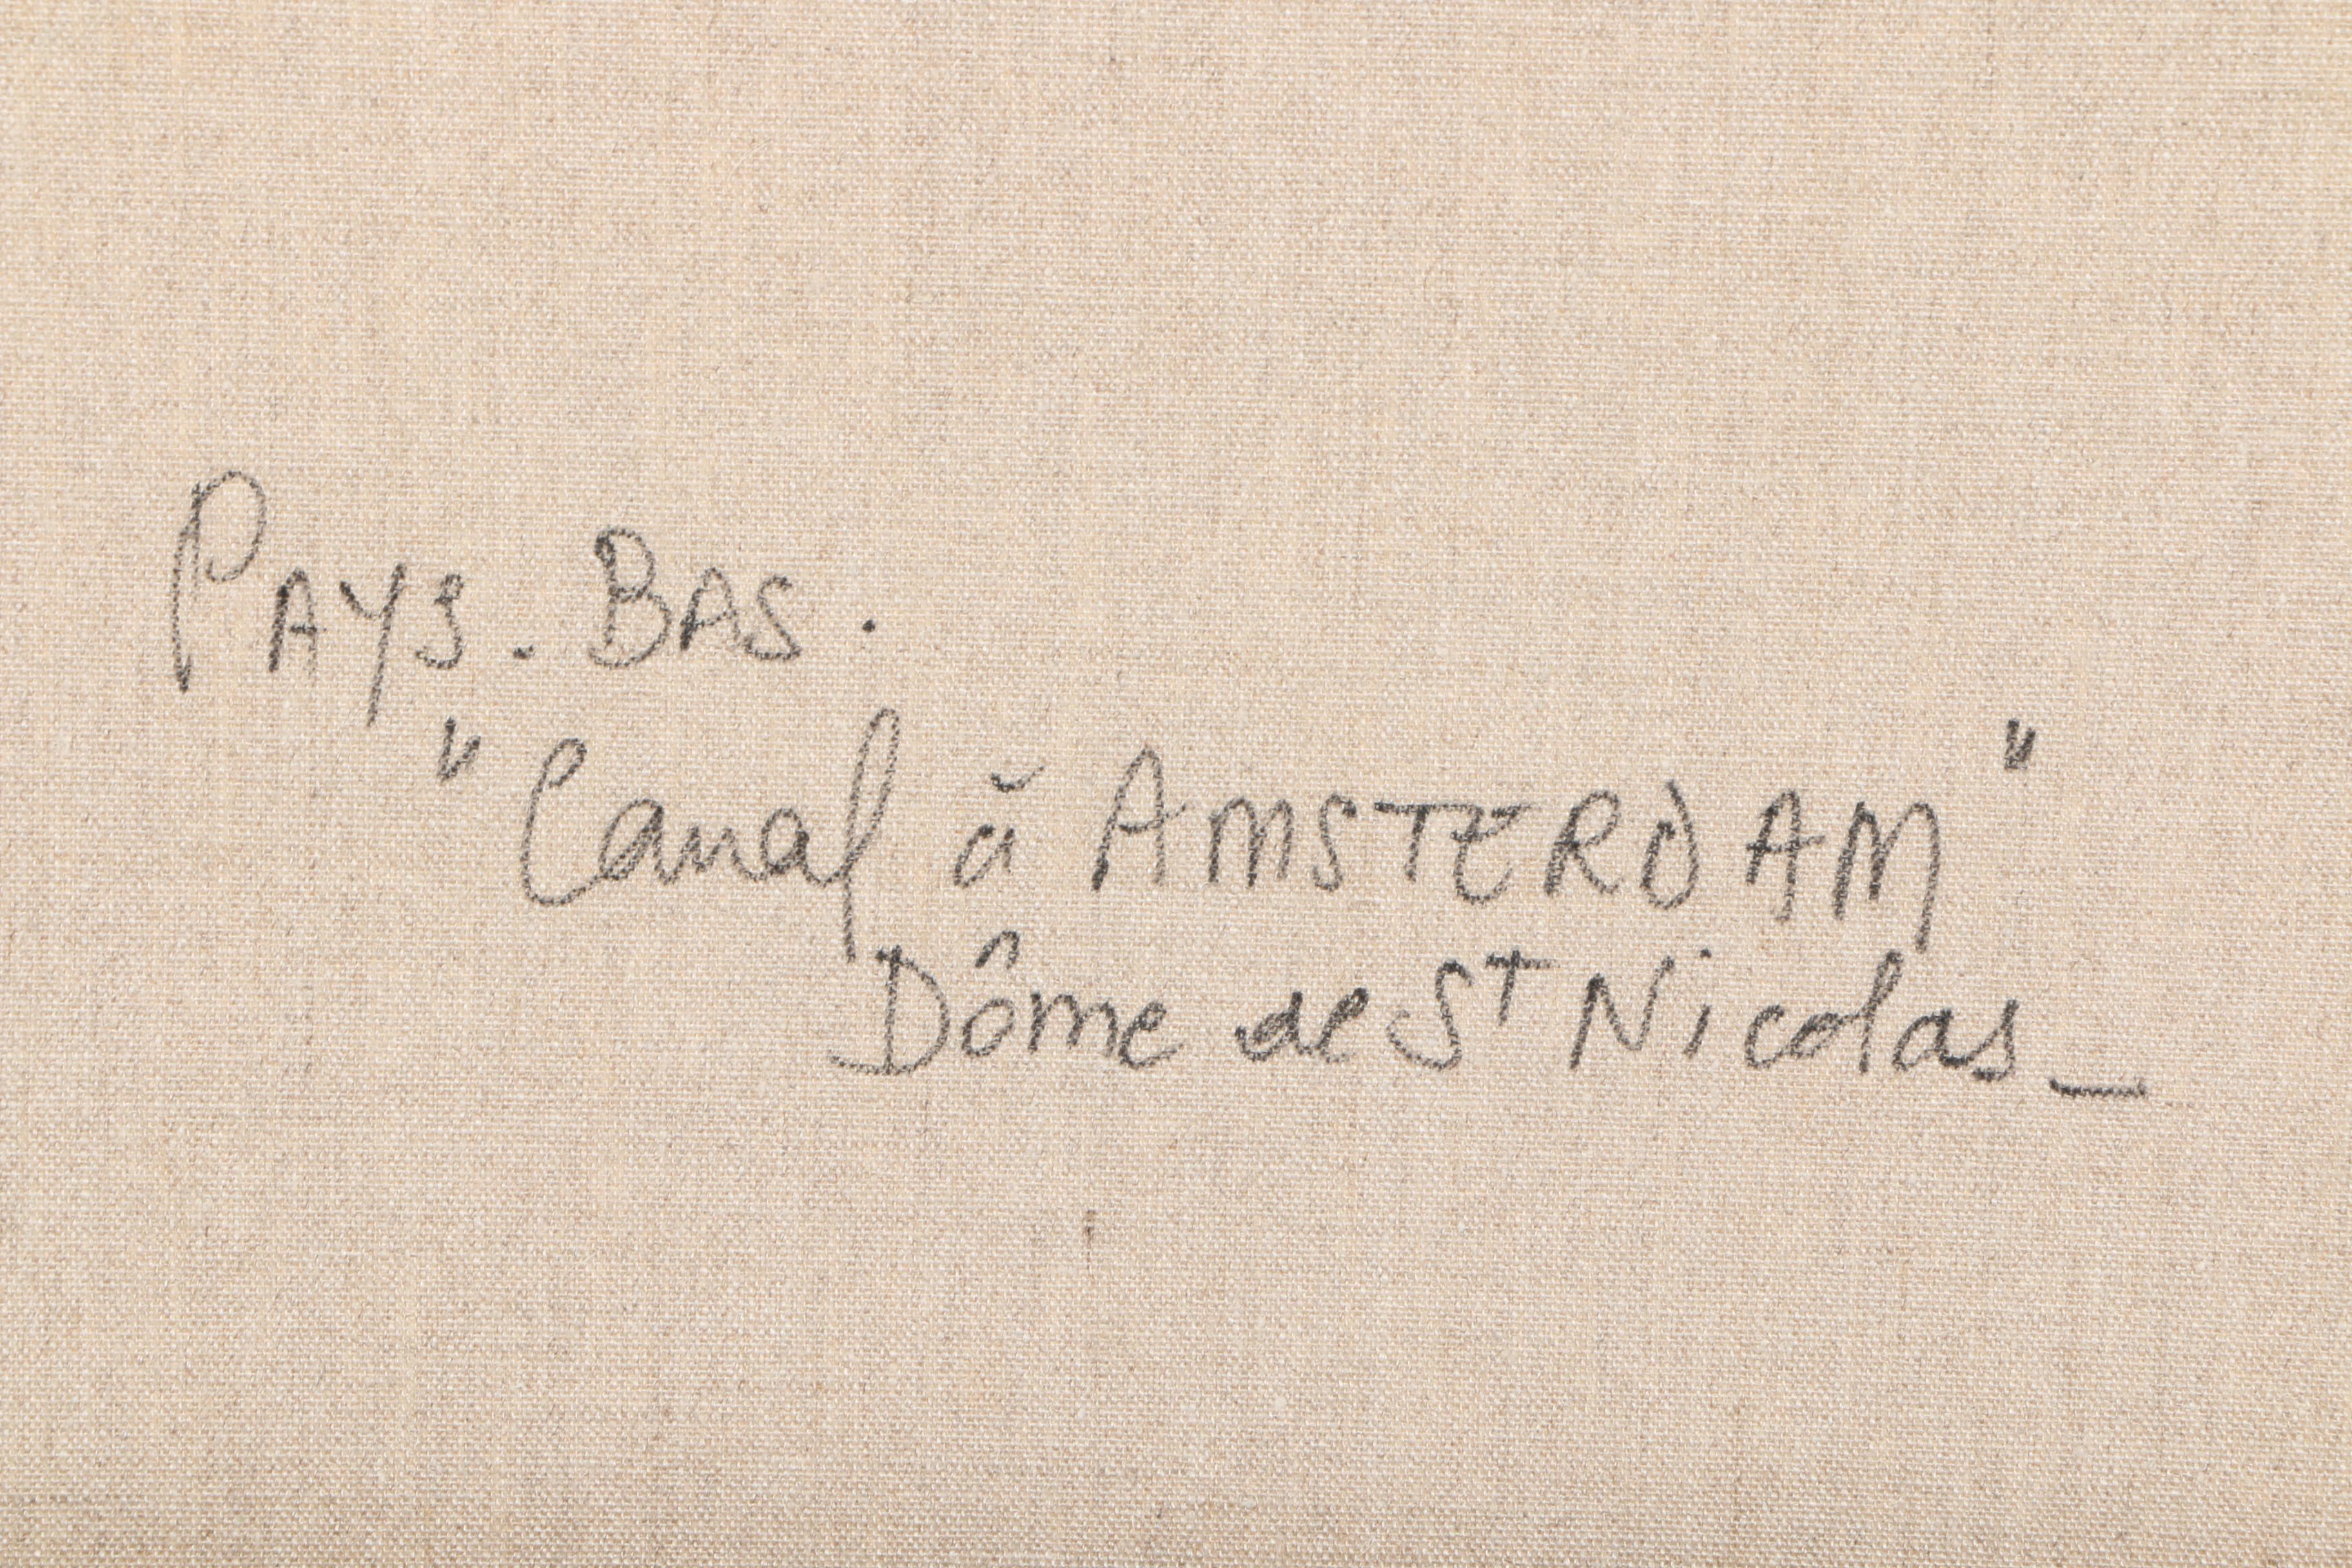 PAYS. BAS.
"Canal à AMSTERDAM"
Dôme de St Nicolas_